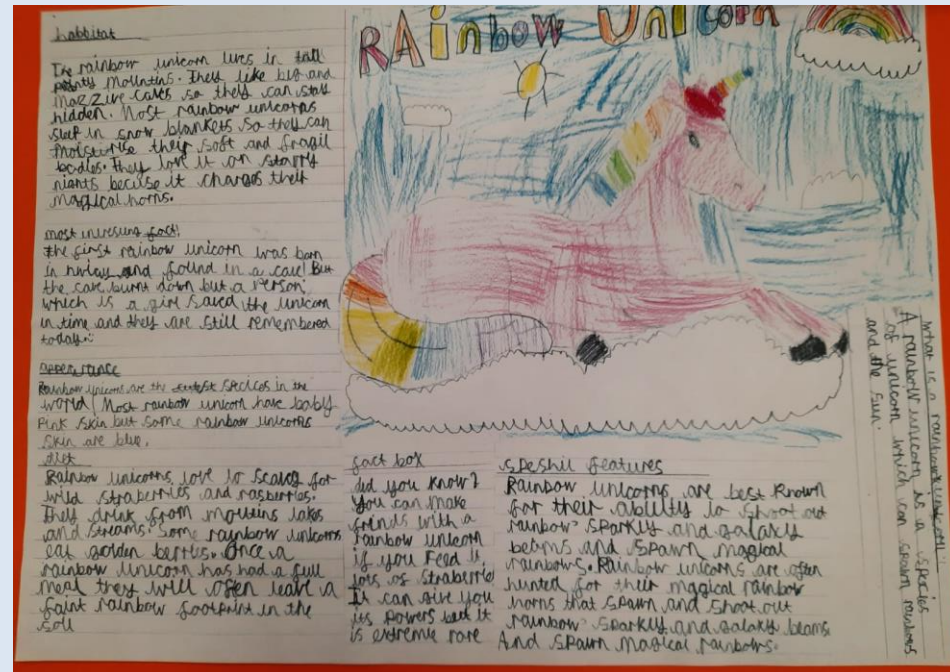 RAinbow Unicorn
habbitat
The rainbow unicorn lives in tall
pointy mountins. They like big and
mazzive caves so they can stay
hidden. Most rainbow unicorns
sleep in snow blankets so they can
moisturise their soft and fragil
bodies. They love it on starry
nights becuse it charges their
magical horns.
most intresting fact!
the first rainbow unicorn was born
in and found in a cave! But
the cave burnt down but a person
which is a girl saved the unicorn
in time and they are still remembered
today.
Appearance
Rainbow unicorns are the species in the
world! Most rainbow unicorn have baby
pink skin but some rainbow unicorns
skin are blue.
diet
Rainbow unicorns love to for
wild straberries and rasberries.
They drink from lakes
and streams. Some rainbow unicorns
eat golden berries. Once a
rainbow unicorn has had a full
meal they will often leave a
faint rainbow footprint in the
soil
fact box
did you know?
You can make
frinds with a
rainbow unicorn
if you feed it
lots of straberries
It can give you
its powers but it
is extreme rare
speshil features
Rainbow unicorns are best known
for their ability to shoot out
rainbow sparkly and galaxy
beams and spawn magical
rainbows. Rainbow unicorns are often
hunted for their magical rainbow
horns that spawn and shoot out
rainbow sparkly and galaxy beams
And spawn magical rainbows.
what is a rainbow unicorn?
A rainbow unicorn is a species
of unicorn which can spawn rainbows
and the sun.